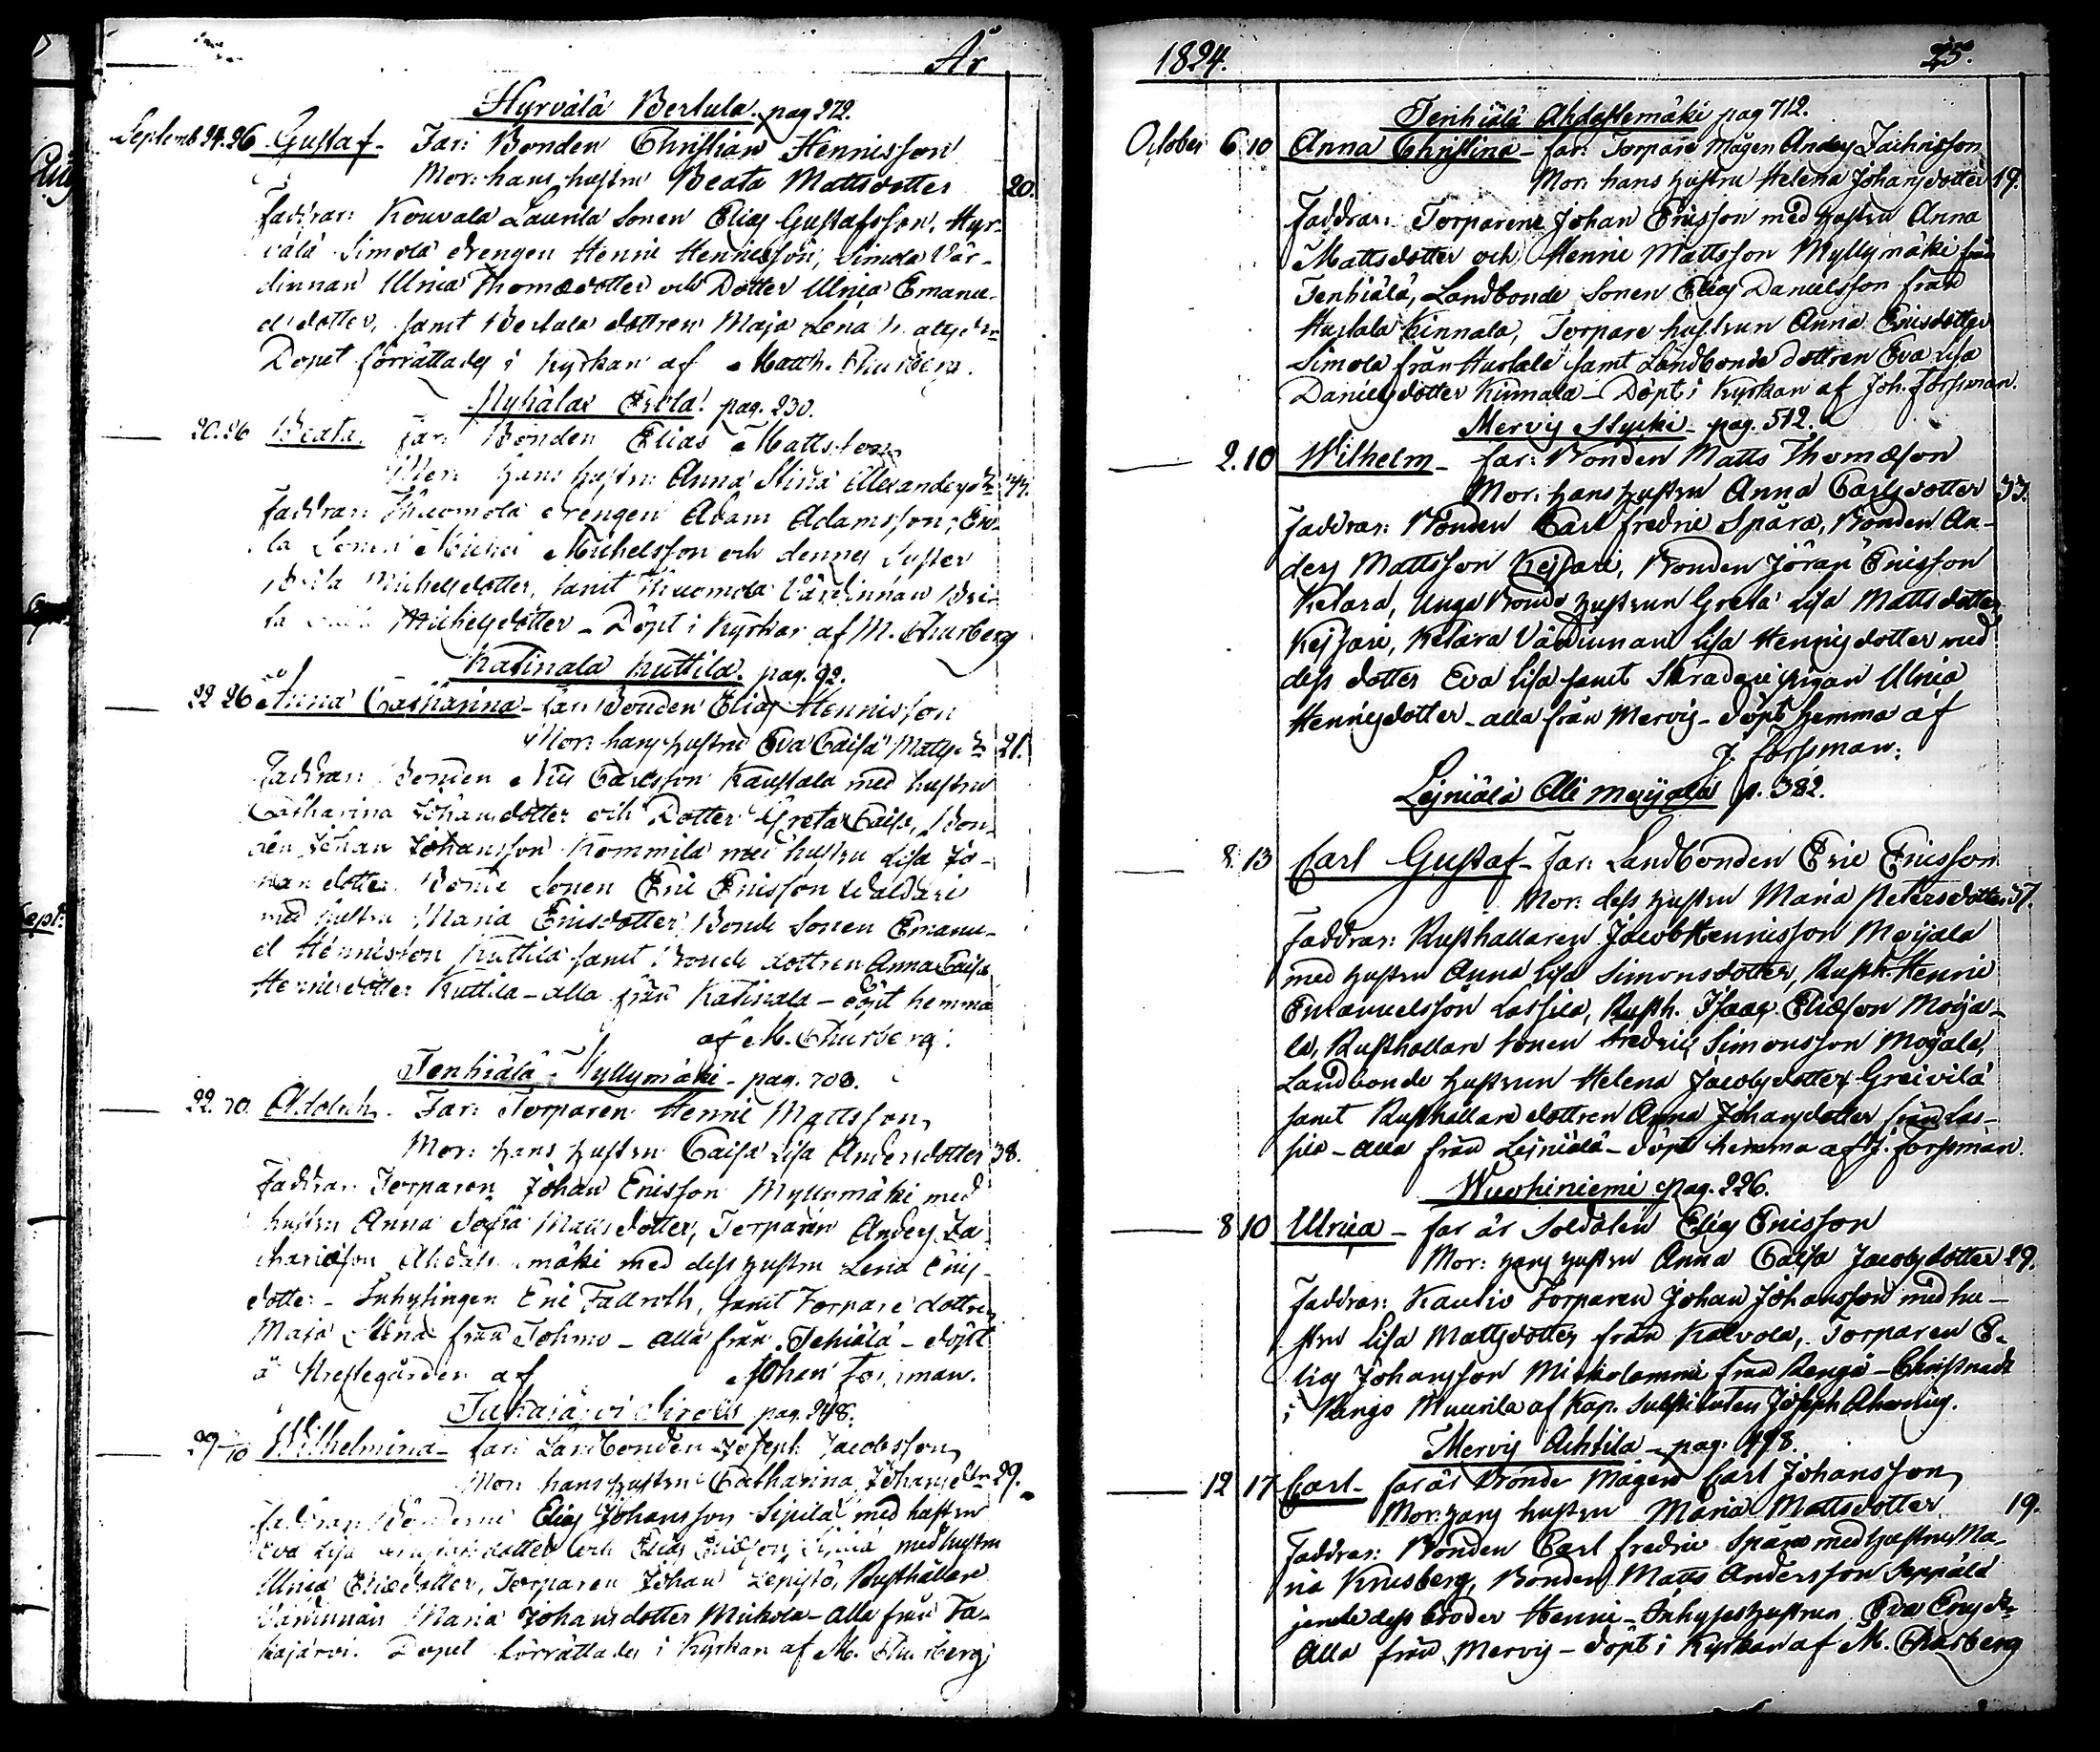 År
Hyrvälä Bertula. pag 272.
Septemb. 24. 26 Gustaf. Far: Bonden Christian Hennisson
Mor: hans hustru Beata Mattsdotter 20.
Faddrar: Kouvala Laurila Sonen Elias Gustafsson, Hyr-
välä Simola drengen Henric Hennisson, Simola Vär-
dinnan Ulrica Thomædotter och Dotter Ulrica Emanu-
elsdotter, samt Bertula dottren Maja Lena
Dopet förrättades i Kyrkan af Matth. Churberg.
pag. 230.
20. 26 Beata. Far: Bonden Elias Mattsson
Mor: hans hustru Anna Stina Alexandersdr
Faddrar: drengen Adam Adamsson,
la Sonen Michel Michelsson och dennes Syster
Brita Michelsdotter, samt Värdinnan Bri-
ta Michelsdotter - Döpt i Kyrkan af M. Churberg
Katinala Kuttila. pag. 92.
22 26 Anna Catharina - far: Bonden Elias Hennisson
Mor: hans hustru Eva Caisa Mattsdr 21.
Faddrar: Bonden Nils Carlsson Kaustala med hustru
Catharina Johansdotter och Dotter Greta Caisa, Bon-
den Johan Johansson Kommila med hustru Lisa Jo-
hansdotter. Bonde Sonen Eric Ericsson Uldari
med hustru Maria Ericsdotter, Bonde Sonen Emanu-
el Hennisson Kuttila samt Bonde dottren Anna Caisa
Hennisdotter Kuttila - alla från Katinala - döpt hemma
af M. Churberg.
Tenhiälä Myllymäki - pag. 708.
22. 30. Adolph. Far: Torparen Henric Mattsson,
Mor: hans hustru Caisa Lisa Andersdotter 38.
Faddrar: Torparen Johan Ericsson Myllymäki med
hustru Anna Sofia Mattsdotter, Torparen Anders Za-
chariæson Ahdastemäki med dess hustru Lena Erics-
dotter - Inhysingen Eric Fallroth, samt Torpare dottren
Maja Stina från - alla från Tehiälä - döpt
å Prestegården af Johan Forsman.
pag. 248.
29/10 Wilhelmina - far: Landbonden Joseph Jacobsson,
Mor: hans hustru Catharina Johansdr 29.
Faddrar: Bönderne Elias Johansson Sipilä med hustru
Eva Lisa dotter och Elias Eliæson, med hustru
Ulrica Eliædotter, Torparen Johan Lepistö, Rusthållare
Värdinnan Maria Johansdotter Mickola - alla från Ta-
kajärvi. Dopet förrättades i Kyrkan af M. Churberg
1824. 25.
Tenhiälä Ahdastemäki pag 712.
October 6 10 Anna Christina - far: Torpare Mågen Anders Zachrisson
Mor: hans hustru Helena Johansdotter 19.
Faddrar: Torparene Johan Ericsson med hustru Anna
Mattsdotter och Henric Mattsson Myllymäki från
Tenhiälä, Landbonde Sonen Elias Danielsson från
Kinnala, Torpare hustrun Anna Ericsdotter
Simola från samt Landbonde dottren Eva Lisa
Danielsdotter Kinnala - Döpt i Kyrkan af Joh. Forsman.
Mervis Nycki - pag. 512.
2. 10 Wilhelm - far: Bonden Matts Thomæson
Mor: hans hustru Anna Carlsdotter 33.
Faddrar: Bonden Carl Fredric Spåra, Bonden An-
ders Mattsson Kejsari, Bonden Jöran Ericsson
Ketara, Unga Bonde hustrun Greta Lisa Mattsdotter
Kejsari, Ketara Värdinnan Lisa Hennisdotter med
dess dotter Eva Lisa samt Skradare pigan Ulrica
Hennisdotter - alla från Mervis - döpt hemma af
J. Forsman.
Lejniälä Olli meijala p. 382.
8. 13 Carl Gustaf - far: Landbonden Eric Ericsson
Mor: dess hustru Maria Petersdotter 37.
Faddrar: Rusthållaren Jacob Hennisson Meijala
med hustru Anna Lisa Simonsdotter, Rusth. Henric
Emanuelsson Lassila, Rusth. Isaac Eliæson Meija-
la, Rusthållare sonen Fredric Simonsson Meijala,
Landbonde hustrun Helena Jacobsdotter Greivilä
samt Rusthållare dottren Anna Johansdotter från Las-
sila - alla från Lejniälä - döpt hemma af J. Forsman.
Wuorhiniemi pag. 226.
8 10 Ulrica - far är Soldaten Elias Ericsson
Mor: hans hustru Anna Caisa Jacobsdotter 29.
Faddrar: Torparen Johan Johansson med hu-
stru Lisa Mattsdotter från Kalvola, Torparen E-
lias Johansson från Rengo - Christnadt
i Rengo Muurila af Kap. Substituten Joseph
Mervis Achtila - pag. 498.
12 17 Carl - far är Bonde Mågen Carl Johansson,
Mor: hans hustru Maria Mattsdotter 19.
Faddrar: Bonden Carl Fredric Spåra med hustru Ma-
ria Krusberg, Bonden Matts Andersson Seppälä
jemte dess broder Henric - Inhyses hustrun Eva Ericsdr
Alla från Mervis - döpt i Kyrkan af M. Churberg